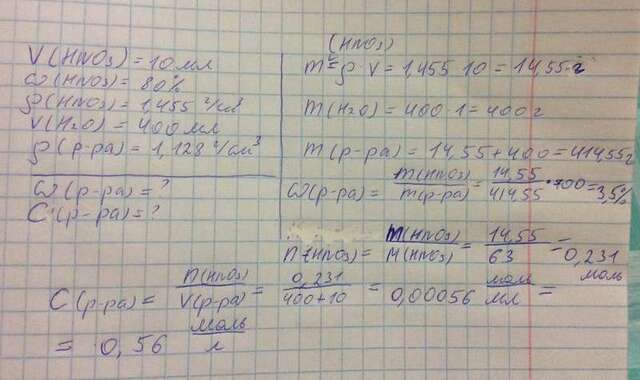 V(HNO3) = 10 мл
ω(HNO3) = 80%
ρ(HNO3) = 1,455 г/см³
V(H2O) = 400 мл
ρ(р-ра) = 1,128 г/см³
ω(р-ра) = ?
C(р-ра) = ?
(HNO3)
m = ρ·V = 1,455·10 = 14,55 г
m(H2O) = 400·1 = 400 г
m(р-ра) = 14,55 + 400 = 414,55 г
ω(р-ра) = m(HNO3)/m(р-ра) = 14,55/414,55 · 100 = 3,5%
n(HNO3) = m(HNO3)/M(HNO3) = 14,55/63 = 0,231 моль
C(р-ра) = n(HNO3)/V(р-ра) = 0,231/400+10 = 0,00056 моль/мл =
= 0,56 моль/л